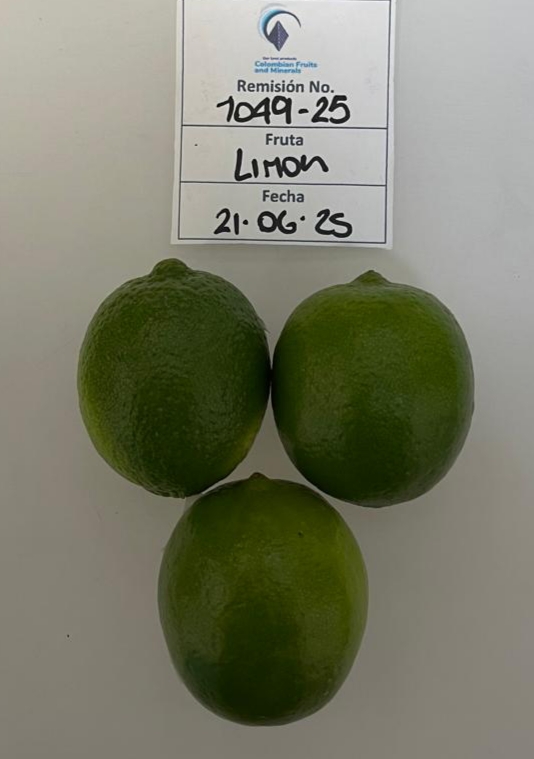 Colombian Fruits
and Minerals
Remisión No.
1049-25
Fruta
Limon
Fecha
21·06·25